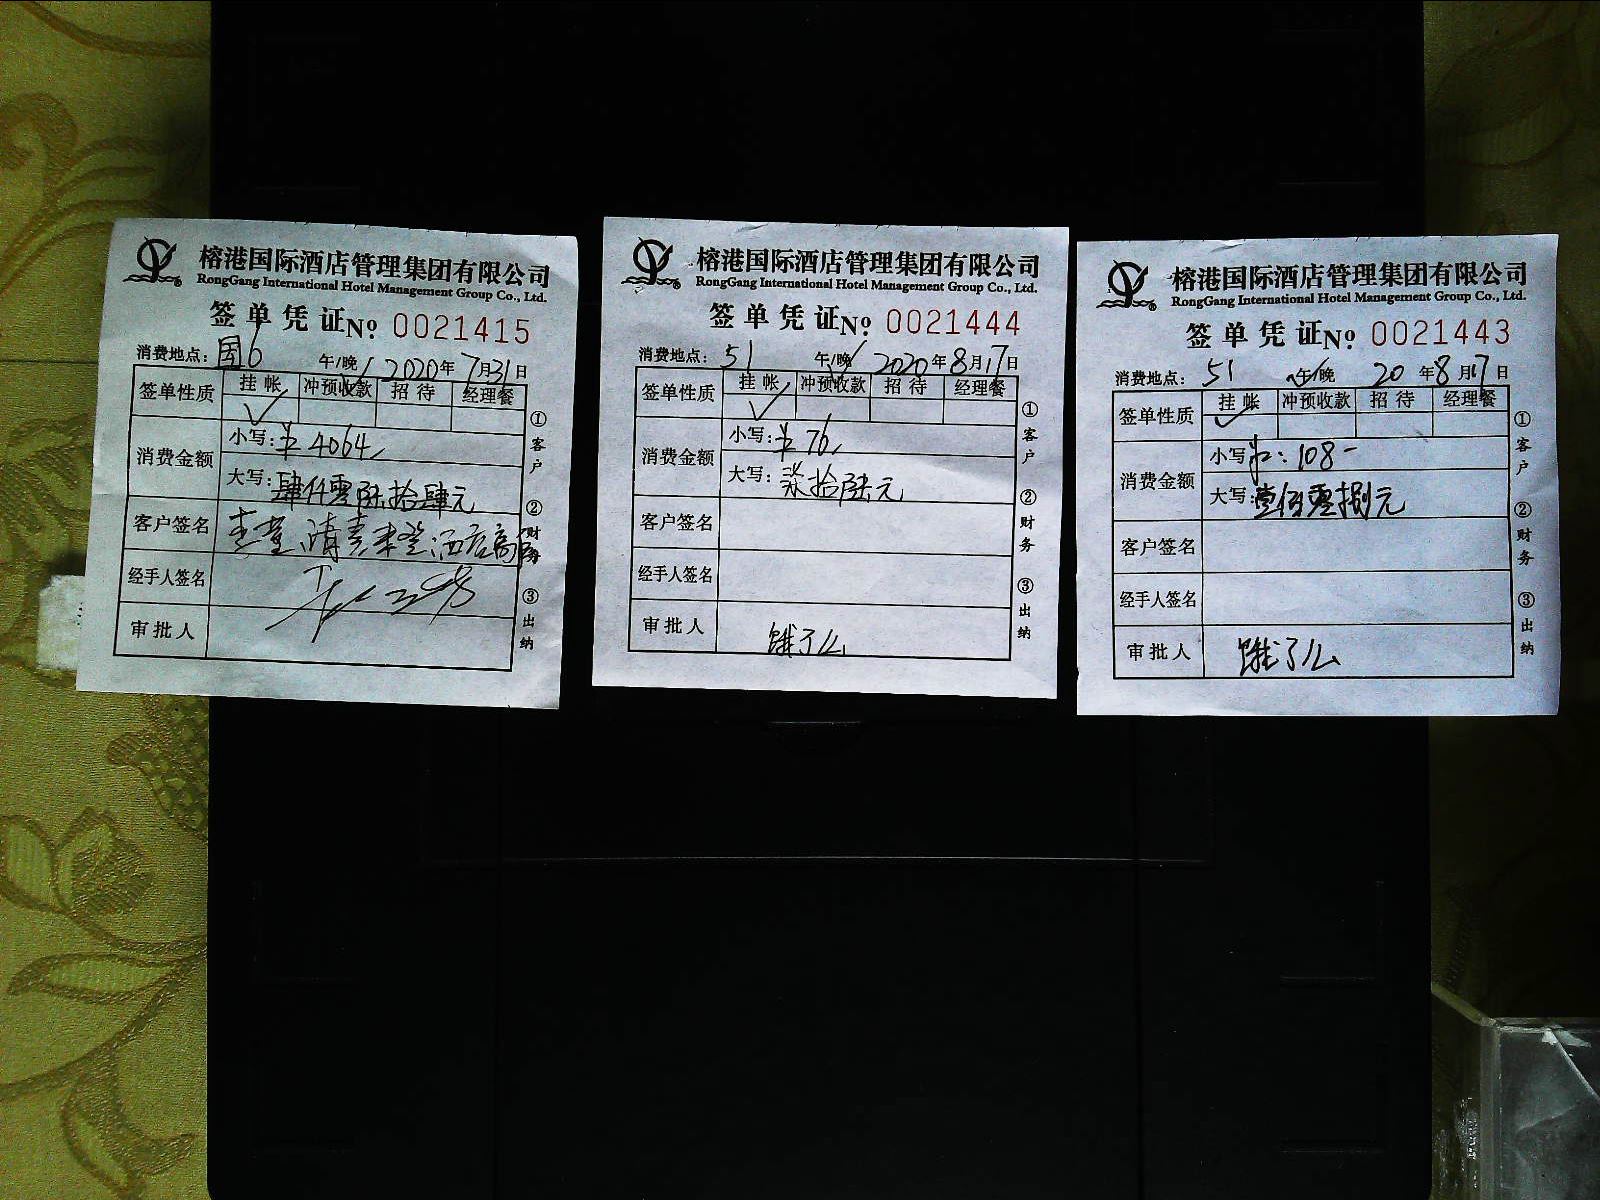 榕港国际酒店管理集团有限公司
RongGang International Hotel Management Group Co., Ltd.
签单凭证 No 0021415
消费地点：国6 午/晚 2020年7月31日
签单性质 挂帐 冲预收款 招待 经理餐
✓
消费金额 小写：¥ 4064
大写：肆仟零陆拾肆元
客户签名
经手人签名
审批人
①客户 ②财务 ③出纳
榕港国际酒店管理集团有限公司
RongGang International Hotel Management Group Co., Ltd.
签单凭证 No 0021444
消费地点：51 午/晚 2020年8月17日
签单性质 挂帐 冲预收款 招待 经理餐
✓
消费金额 小写：¥ 76
大写：柒拾陆元
客户签名
经手人签名
审批人 饿了么
①客户 ②财务 ③出纳
榕港国际酒店管理集团有限公司
RongGang International Hotel Management Group Co., Ltd.
签单凭证 No 0021443
消费地点：51 午/晚 20年8月17日
签单性质 挂帐 冲预收款 招待 经理餐
✓
消费金额 小写：108-
大写：壹佰零捌元
客户签名
经手人签名
审批人 饿了么
①客户 ②财务 ③出纳